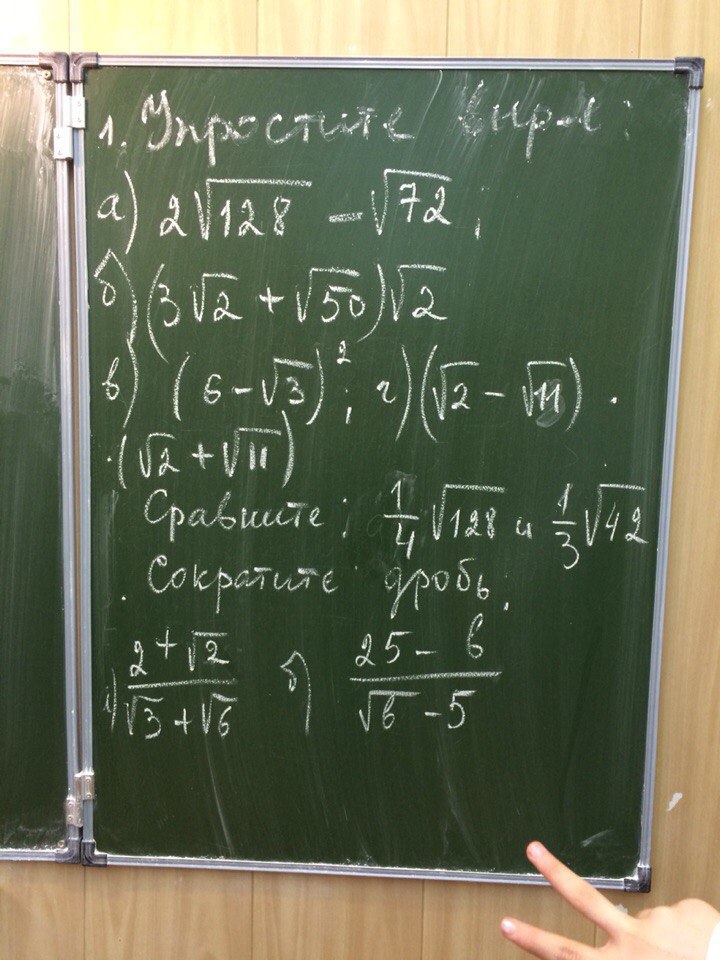 1. Упростите выраж:
а) 2√128 − √72;
б) (3√2 + √50)√2
в) (6 − √3)²; г) (√2 − √11) ·
· (√2 + √11)
Сравните: 1/4 √128 и 1/3 √42
. Сократите дробь.
а) (2 + √2)/(√3 + √6) б) (25 − в)/(√в − 5)